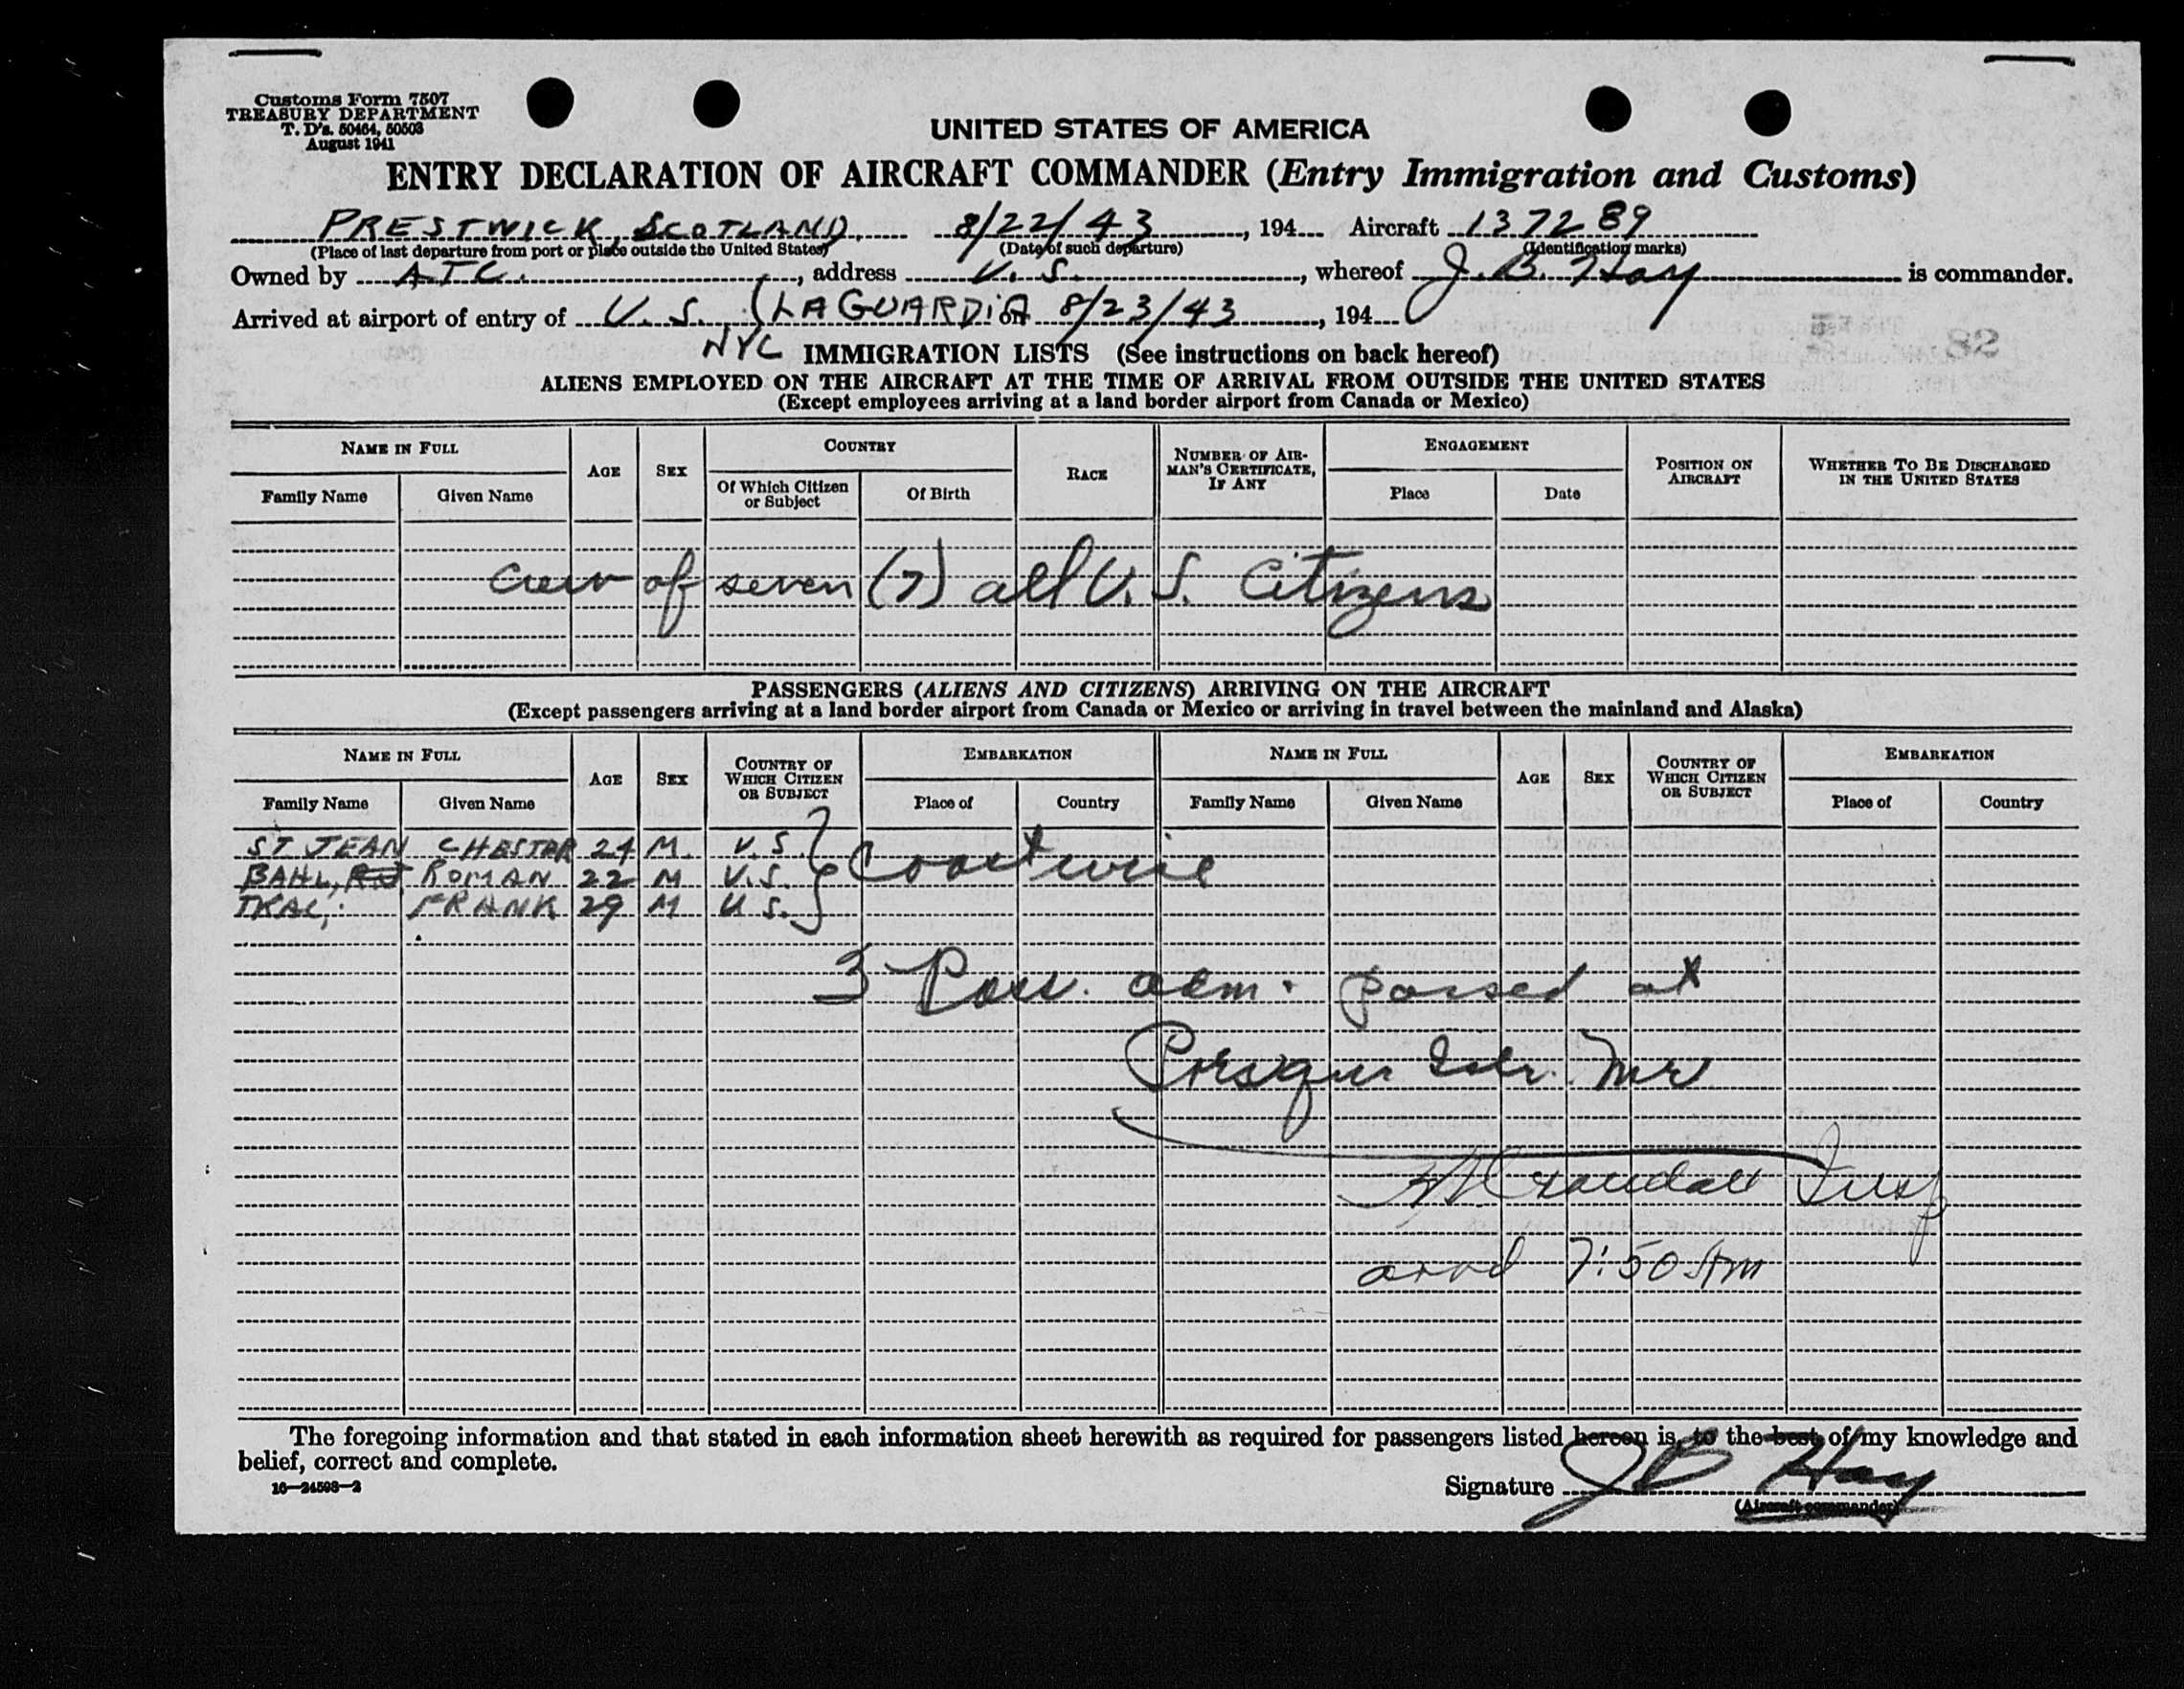 Customs Form 7507
TREASURY DEPARTMENT
T. D's. 50464, 50503
August 1941
UNITED STATES OF AMERICA
ENTRY DECLARATION OF AIRCRAFT COMMANDER (Entry Immigration and Customs)
PRESTWICK, SCOTLAND, 8/22/43, 194 Aircraft 137289
(Place of last departure from port or place outside the United States) (Date of such departure) (Identification marks)
Owned by A.T.C., address U. S., whereof J. B. Hay is commander.
Arrived at airport of entry of U. S. (LAGUARDIA on 8/23/43, 194
NYC IMMIGRATION LISTS (See instructions on back hereof)
ALIENS EMPLOYED ON THE AIRCRAFT AT THE TIME OF ARRIVAL FROM OUTSIDE THE UNITED STATES
(Except employees arriving at a land border airport from Canada or Mexico)
NAME IN FULL AGE SEX COUNTRY RACE NUMBER OF AIRMAN'S CERTIFICATE, IF ANY ENGAGEMENT POSITION ON AIRCRAFT WHETHER TO BE DISCHARGED IN THE UNITED STATES
Family Name Given Name Of Which Citizen or Subject Of Birth Place Date
Crew of seven (7) all U. S. Citizens
PASSENGERS (ALIENS AND CITIZENS) ARRIVING ON THE AIRCRAFT
(Except passengers arriving at a land border airport from Canada or Mexico or arriving in travel between the mainland and Alaska)
NAME IN FULL AGE SEX COUNTRY OF WHICH CITIZEN OR SUBJECT EMBARKATION NAME IN FULL AGE SEX COUNTRY OF WHICH CITIZEN OR SUBJECT EMBARKATION
Family Name Given Name Place of Country Family Name Given Name Place of Country
ST JEAN CHESTER 24 M. U.S. Coastwise
BAHL, ROMAN 22 M U.S.
TKAC, FRANK 29 M U S.
3 Pass. adm. passed at
Presque Isle. Me
Crandall Insp
arrd 7:50 Am
The foregoing information and that stated in each information sheet herewith as required for passengers listed hereon is, to the best of my knowledge and
belief, correct and complete.
16—24598-2
Signature J B Hay
(Aircraft commander)